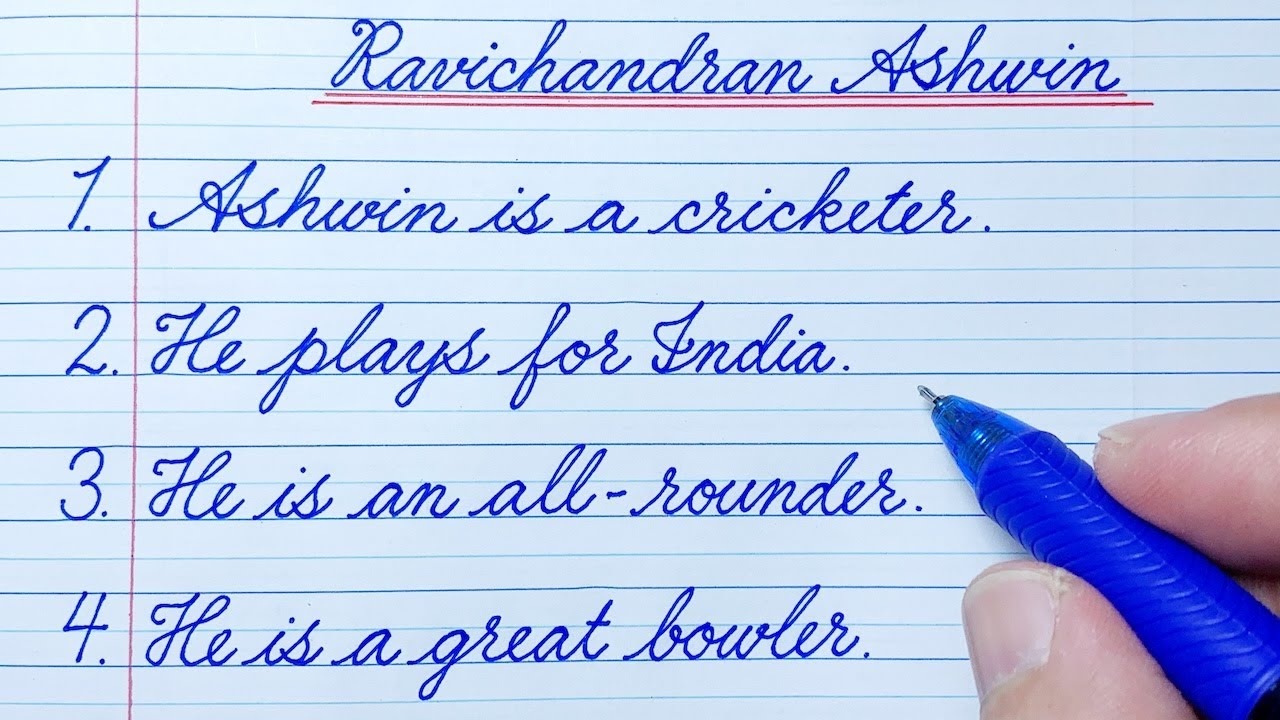 Ravichandran Ashwin
1. Ashwin is a cricketer.
2. He plays for India.
3. He is an all-rounder.
4. He is a great bowler.